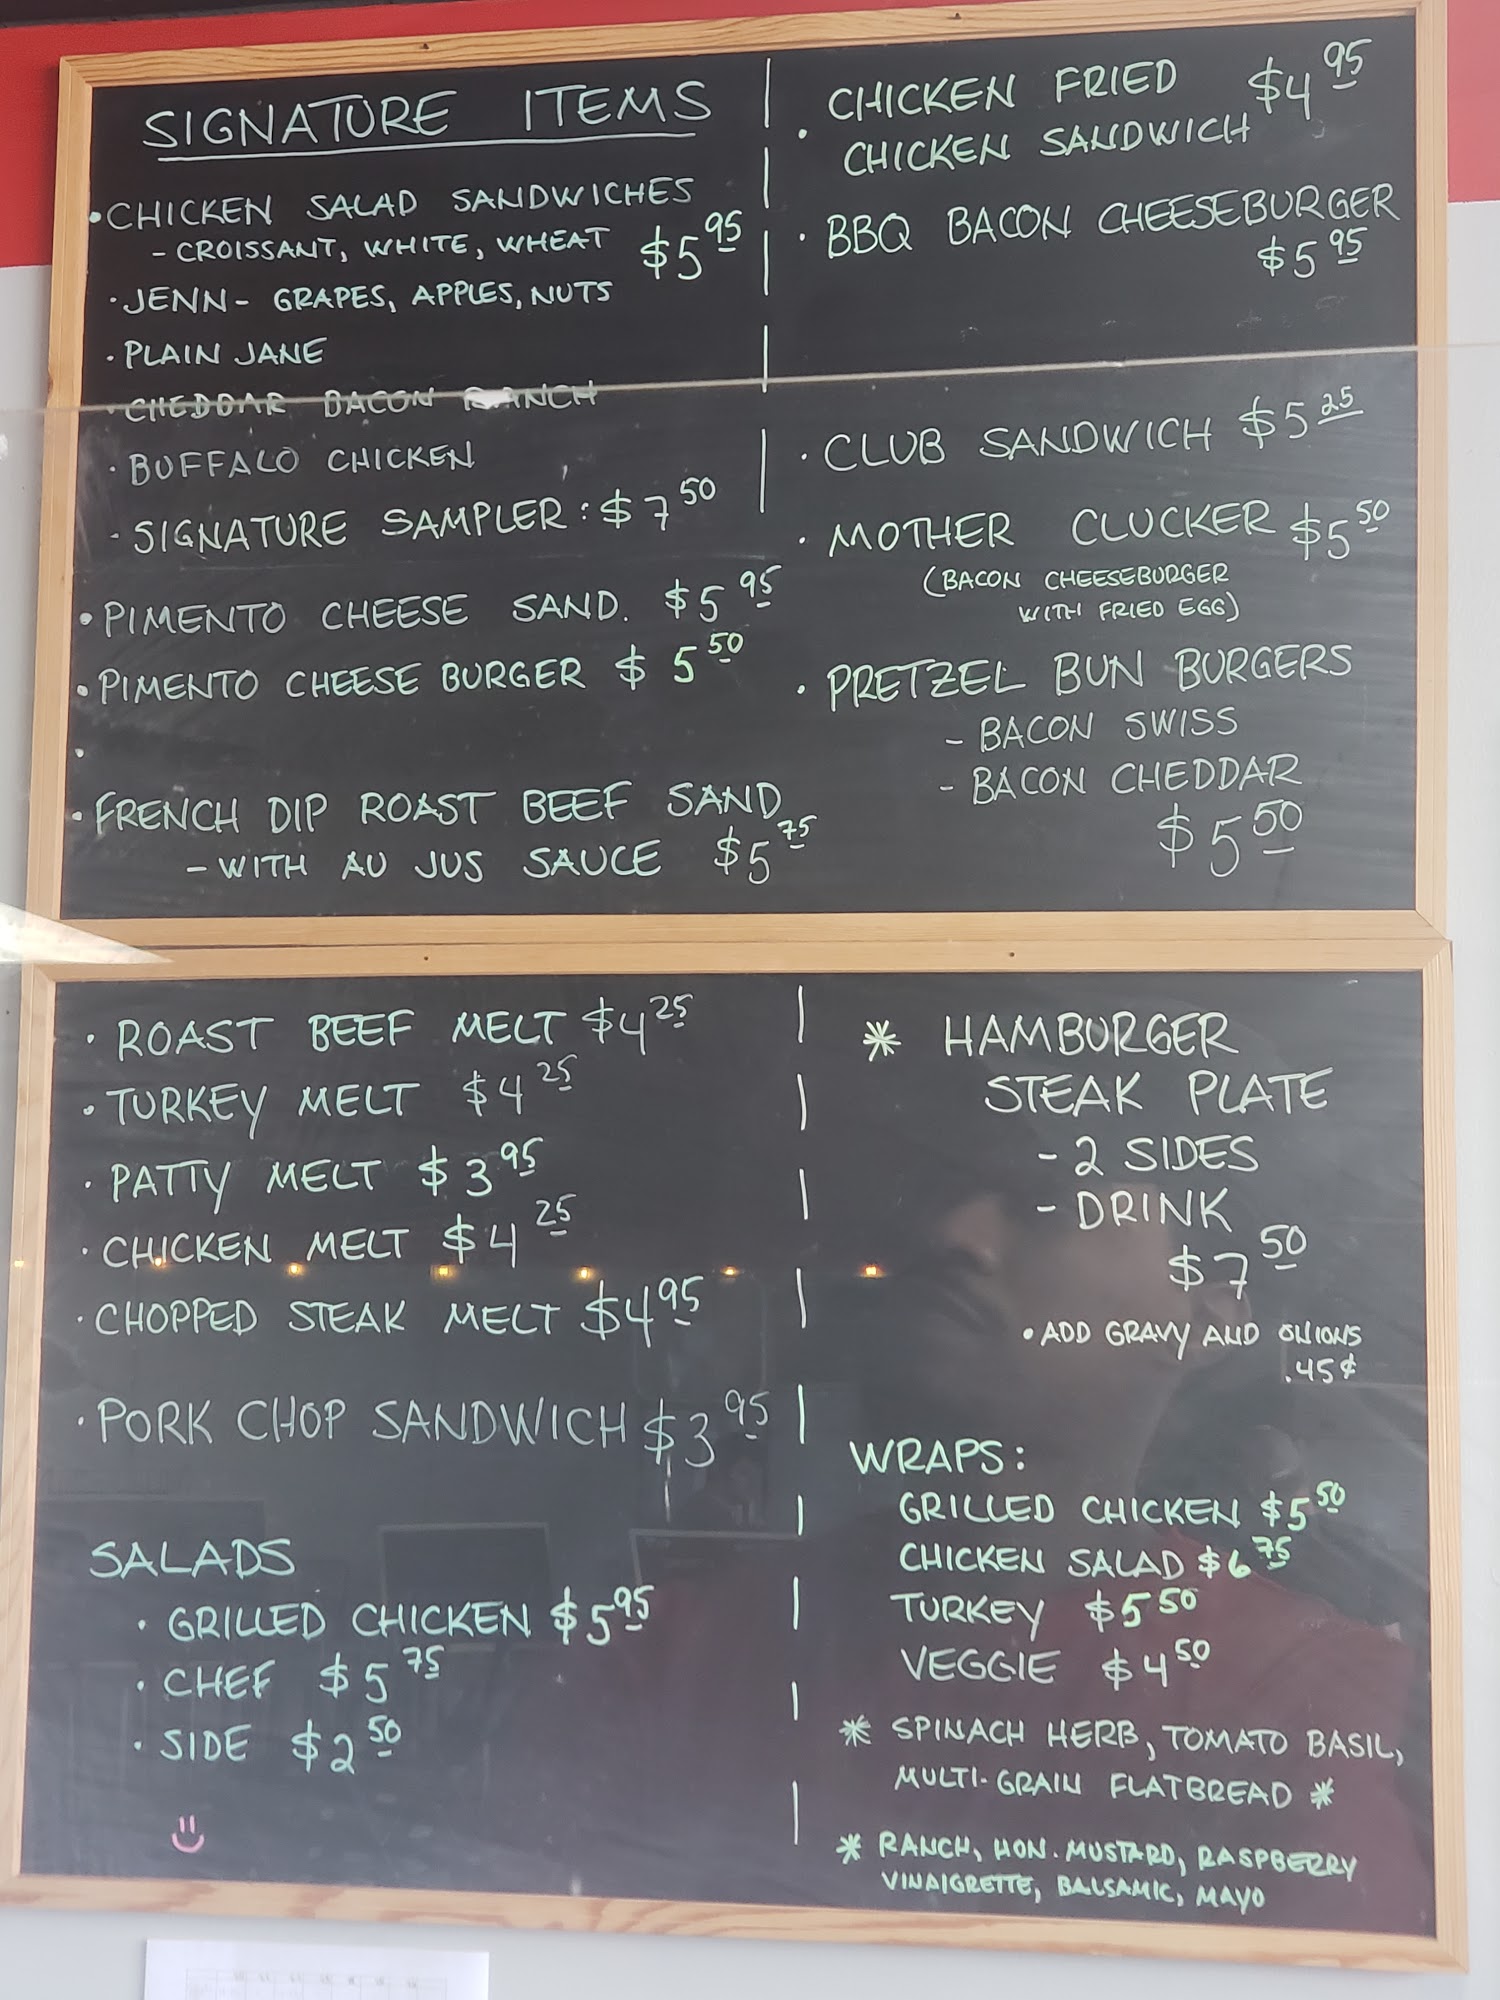 SIGNATURE ITEMS
• CHICKEN SALAD SANDWICHES
- CROISSANT, WHITE, WHEAT $5 95
· JENN - GRAPES, APPLES, NUTS
· PLAIN JANE
· CHEDDAR BACON RANCH
· BUFFALO CHICKEN
- SIGNATURE SAMPLER: $7 50
• PIMENTO CHEESE SAND. $5 95
• PIMENTO CHEESE BURGER $5 50
•
• FRENCH DIP ROAST BEEF SAND
- WITH AU JUS SAUCE $5 75
• CHICKEN FRIED $4 95
CHICKEN SANDWICH
· BBQ BACON CHEESEBURGER
$5 95
· CLUB SANDWICH $5 25
· MOTHER CLUCKER $5 50
(BACON CHEESEBURGER
WITH FRIED EGG)
· PRETZEL BUN BURGERS
- BACON SWISS
- BACON CHEDDAR
$5 50
· ROAST BEEF MELT $4 25
· TURKEY MELT $4 25
· PATTY MELT $3 95
· CHICKEN MELT $4 25
· CHOPPED STEAK MELT $4 95
· PORK CHOP SANDWICH $3 95
SALADS
· GRILLED CHICKEN $5 95
· CHEF $5 75
· SIDE $2 50
* HAMBURGER
STEAK PLATE
- 2 SIDES
- DRINK
$7 50
• ADD GRAVY AND ONIONS
.45¢
WRAPS:
GRILLED CHICKEN $5 50
CHICKEN SALAD $6 75
TURKEY $5 50
VEGGIE $4 50
* SPINACH HERB, TOMATO BASIL,
MULTI-GRAIN FLATBREAD *
* RANCH, HON. MUSTARD, RASPBERRY
VINAIGRETTE, BALSAMIC, MAYO